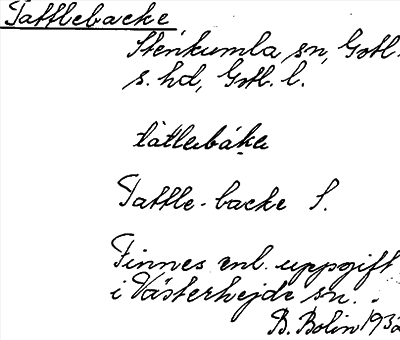 Tattlebacke
Stenkumla sn, Gotl.
s. hd, Gotl. l.
tàtlebákε
Tattle-backe S.
Finnes enl. uppgift
i Västerhejde sn.
B. Bolin 1932